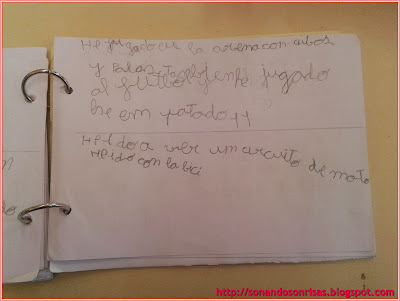 He jugado en la arena con cubos
y palas
al futbol jugado
he em patado 11
He Ido a ver un circuito de moto
He Ido con la bici
http://sonandosonrisas.blogspot.com/